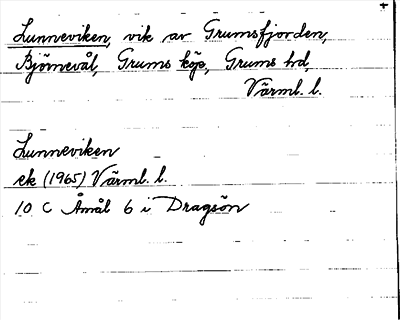 +
Lunneviken, vik av Grumsfjorden,
Björnevål, Grums köp, Grums hd,
Värml. l.
Lunneviken
ek (1965) Värml. l.
10 C Åmål 6 i Dragsön